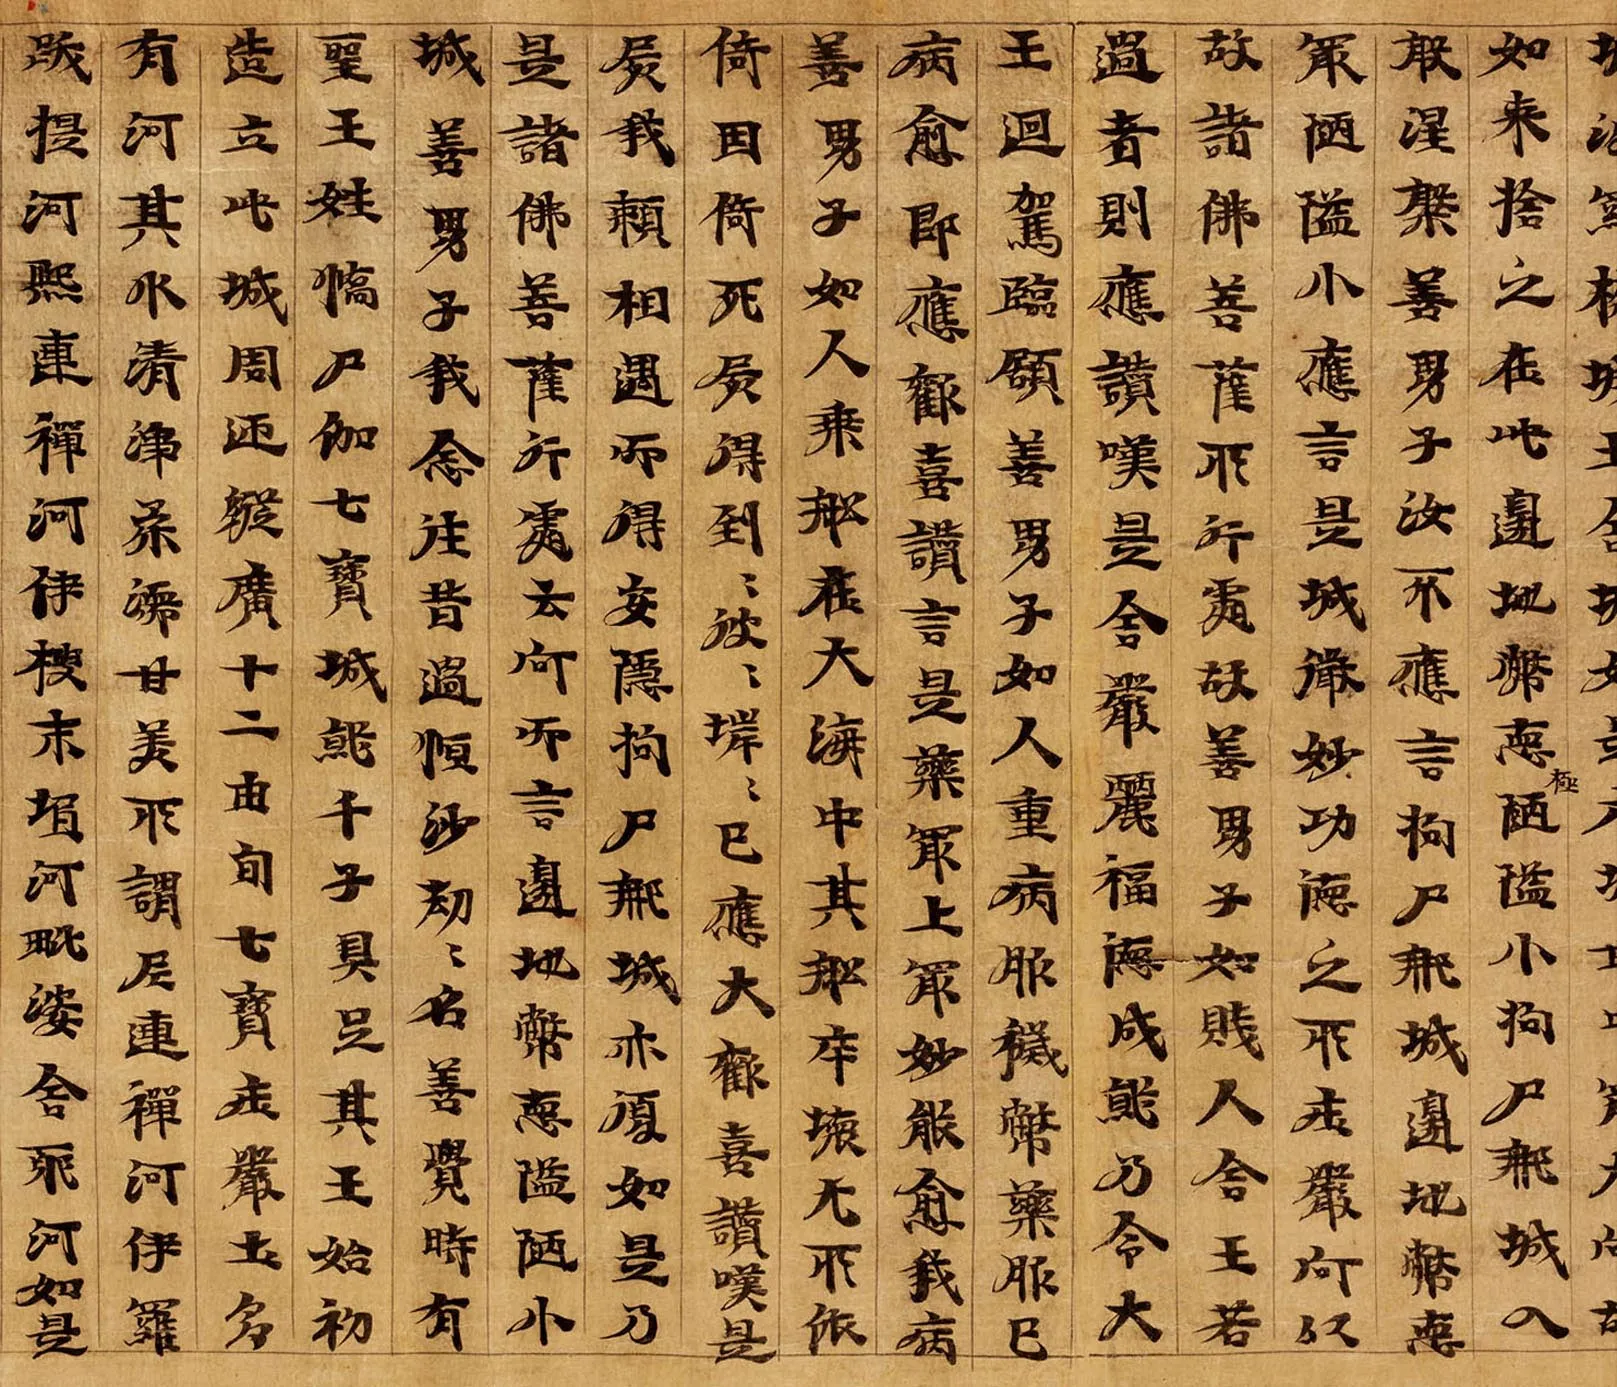 如来捨之在此邊地弊惡極陋隘小拘尸那城入
般涅槃善男子汝不應言拘尸那城邊地弊惡
冣陋隘小應言是城微妙功德之所庄嚴何以
故諸佛菩薩所行處故善男子如賤人舍王若
過者則應讚嘆是舍嚴麗福德成就乃令大
王迴駕臨顧善男子如人重病服穢弊藥服已
病愈即應歡喜讚言是藥冣上冣妙能愈我病
善男子如人乘舩在大海中其舩卒壞无所依
倚因倚死屍得到〻彼〻岸〻已應大歡喜讚嘆是
屍我賴相遇而得安隱拘尸那城亦復如是乃
是諸佛菩薩行處云何而言邊地弊惡隘陋小
城善男子我念往昔過恒沙劫〻名善覺時有
聖王姓憍尸伽七寶城就千子具足其王始初
造立此城周迊縱廣十二由旬七寶庄嚴土多
有河其水清淨柔濡甘美所謂尼連禪河伊羅
跋提河熙連禪河伊搜末埧河毗婆舍那河如是